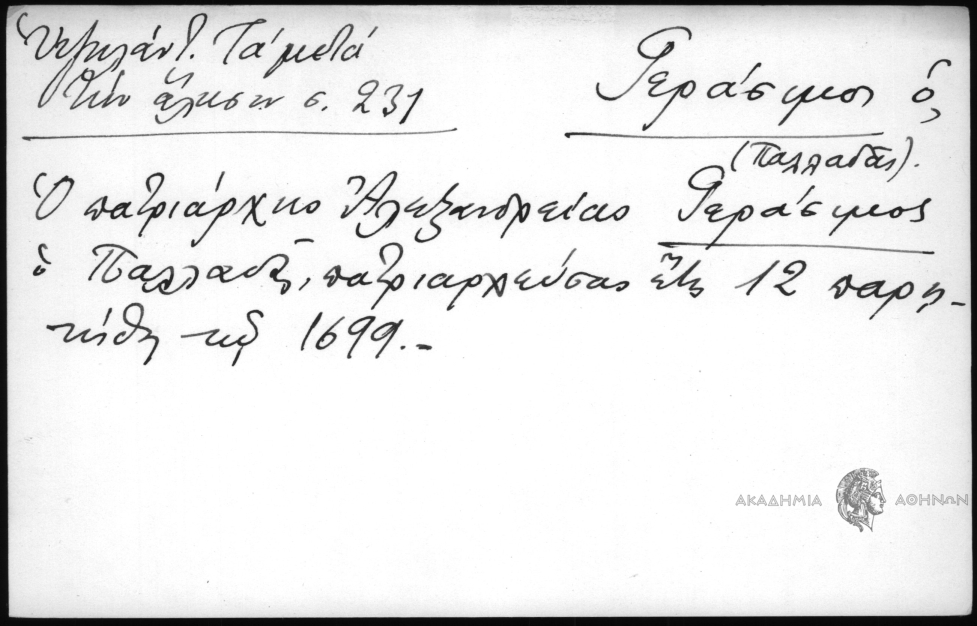 Ὑψηλάντ. Τά μετά
τήν ἅλωσιν σ. 231
Γεράσιμος ὁ
(Παλλαδᾶς).
Ὁ πατριάρχης Ἀλεξανδρείας Γεράσιμος
ὁ Παλλαδᾶς, πατριαρχεύσας ἔτη 12 παρη-
τήθη τῷ 1699.-
ΑΚΑΔΗΜΙΑ ΑΘΗΝΩΝ